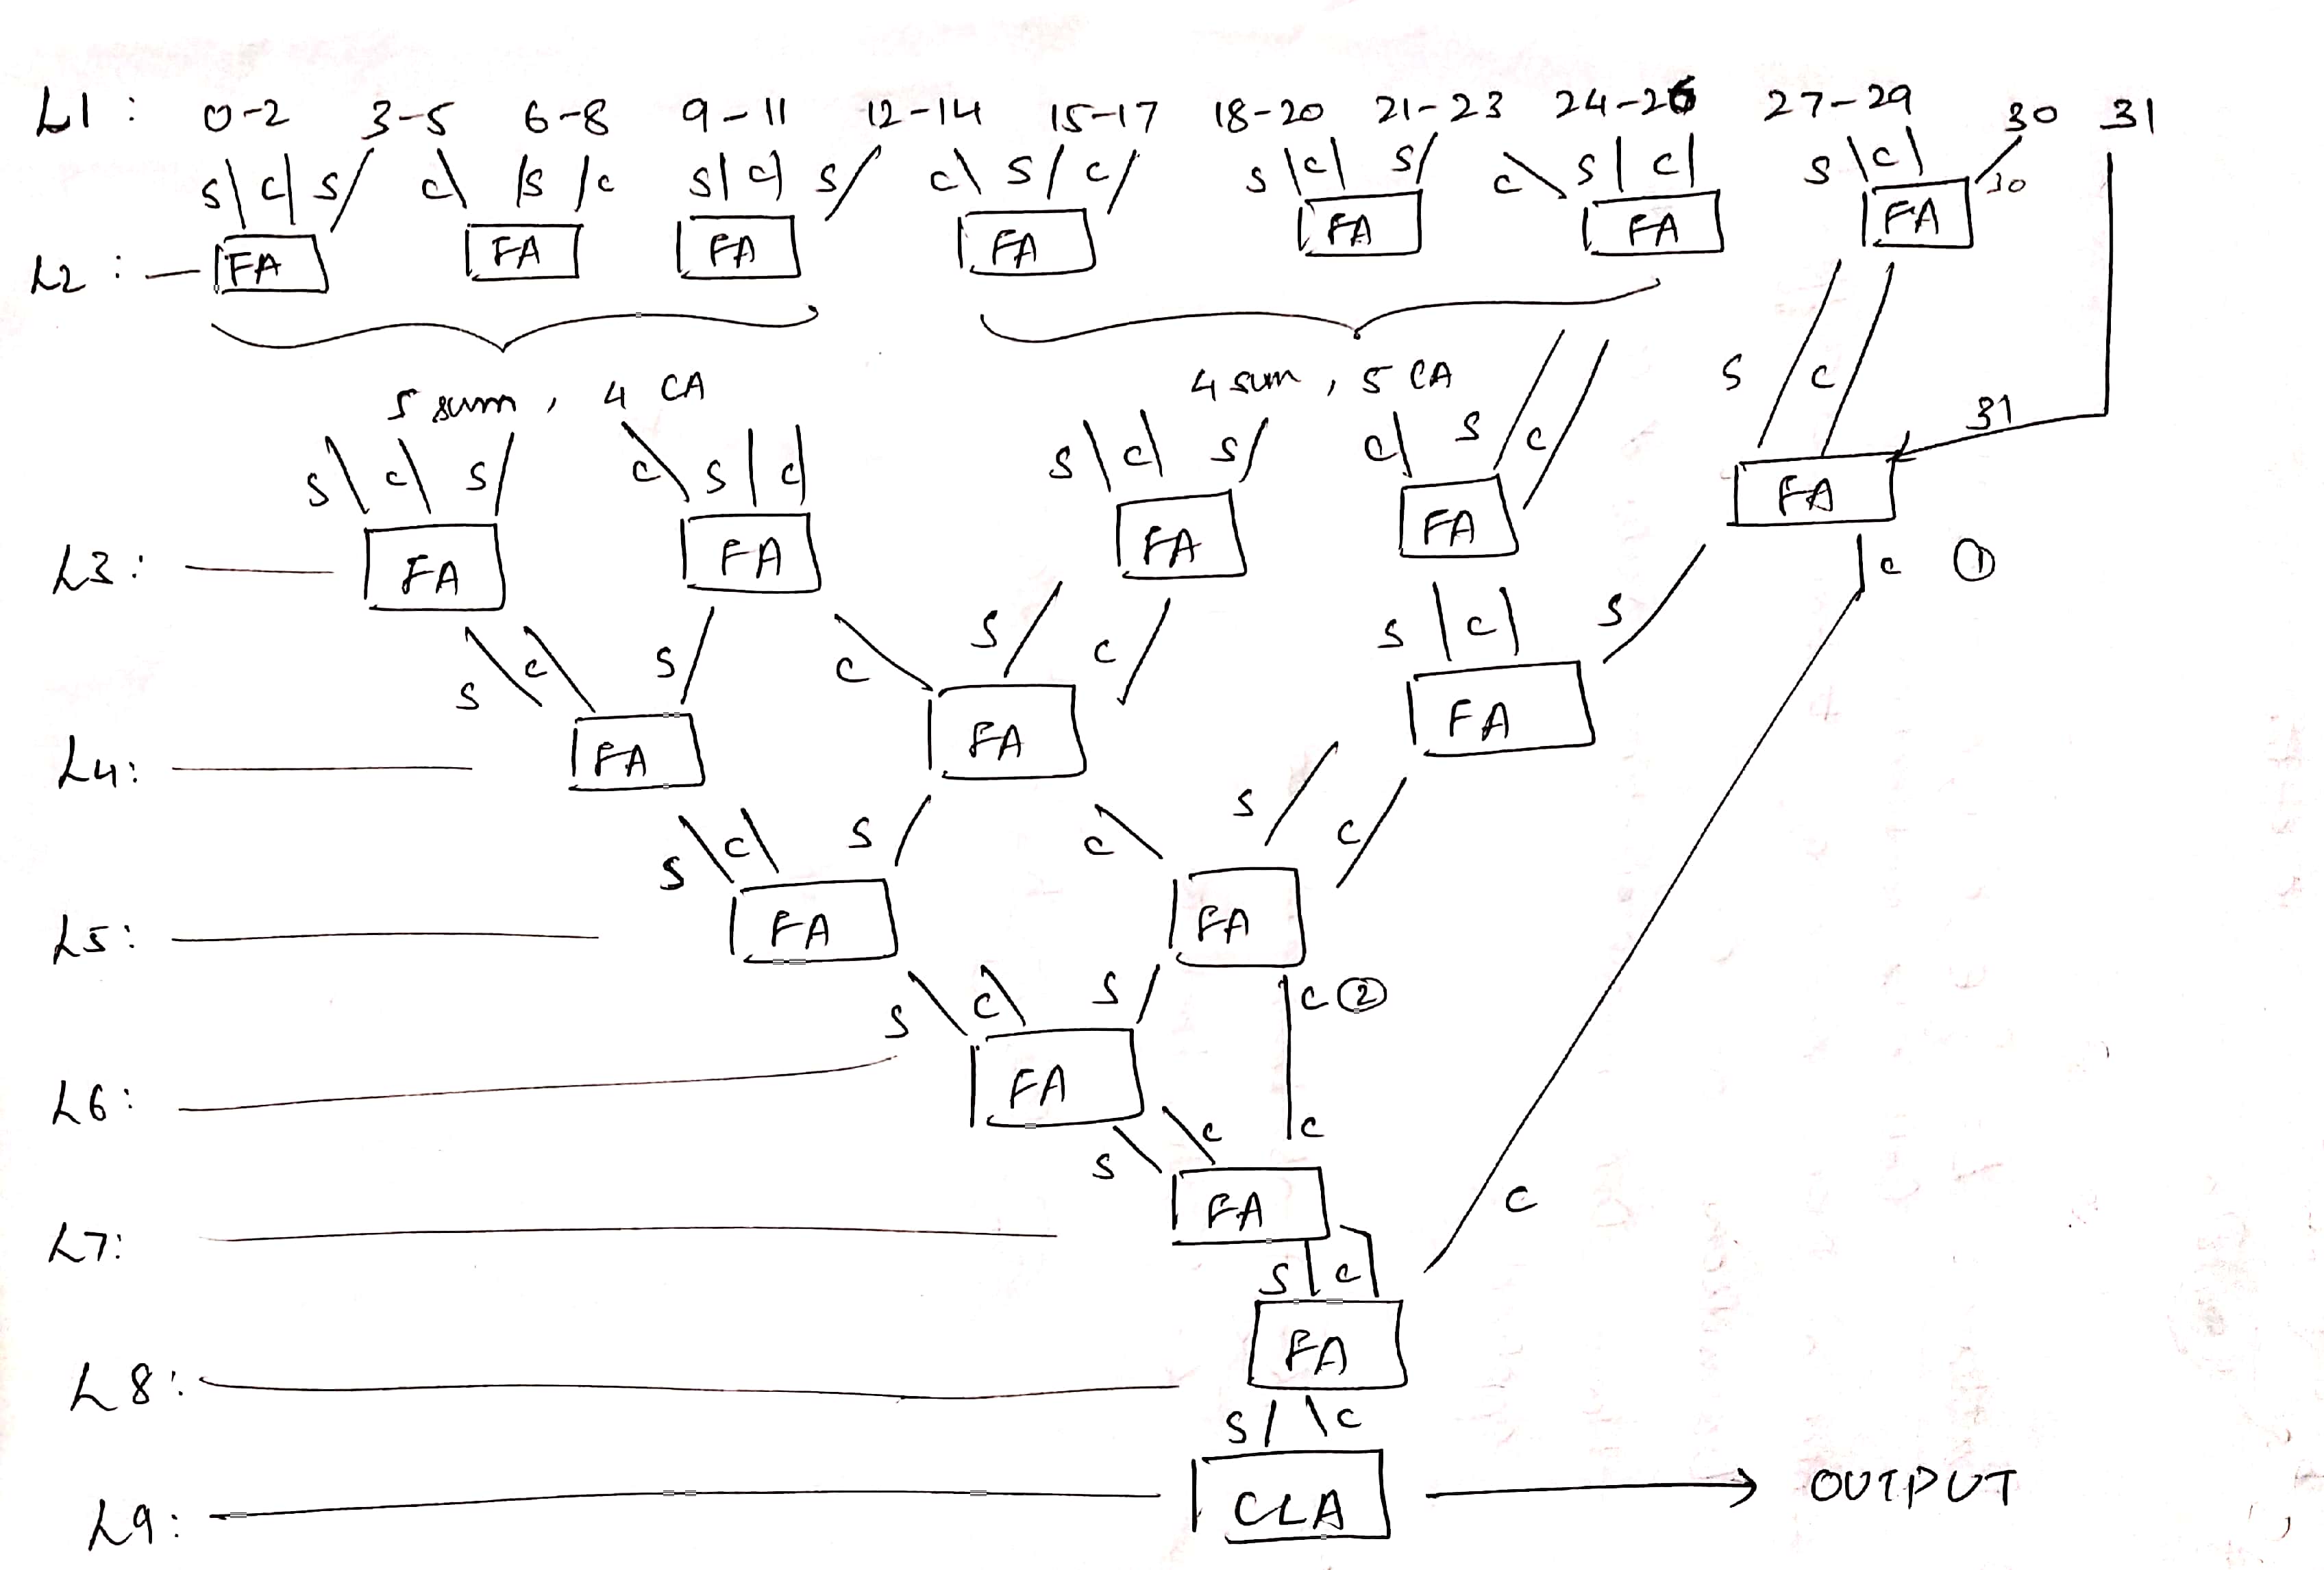 L1 : 0-2 3-5 6-8 9-11 12-14 15-17 18-20 21-23 24-26 27-29 30 31
S C S C S C S C S C S C S C S C S C S C 30
L2 : FA FA FA FA FA FA FA
5 sum, 4 CA 4 sum, 5 CA S C 31
S C S C S C S C S C S C
L3 : FA FA FA FA FA
S C S C S C S C S C ①
L4: FA FA FA
S C S C S C
L5: FA FA
S C S C ②
L6: FA
S C C
L7: FA C
S C
L8: FA
S C
L9: CLA OUTPUT